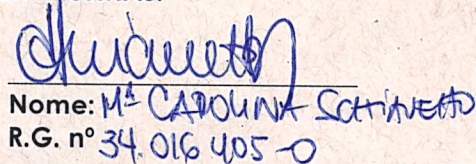 Nome: Mª CAROLINA SCHIAVETTO
R.G. nº 34.016.405-0